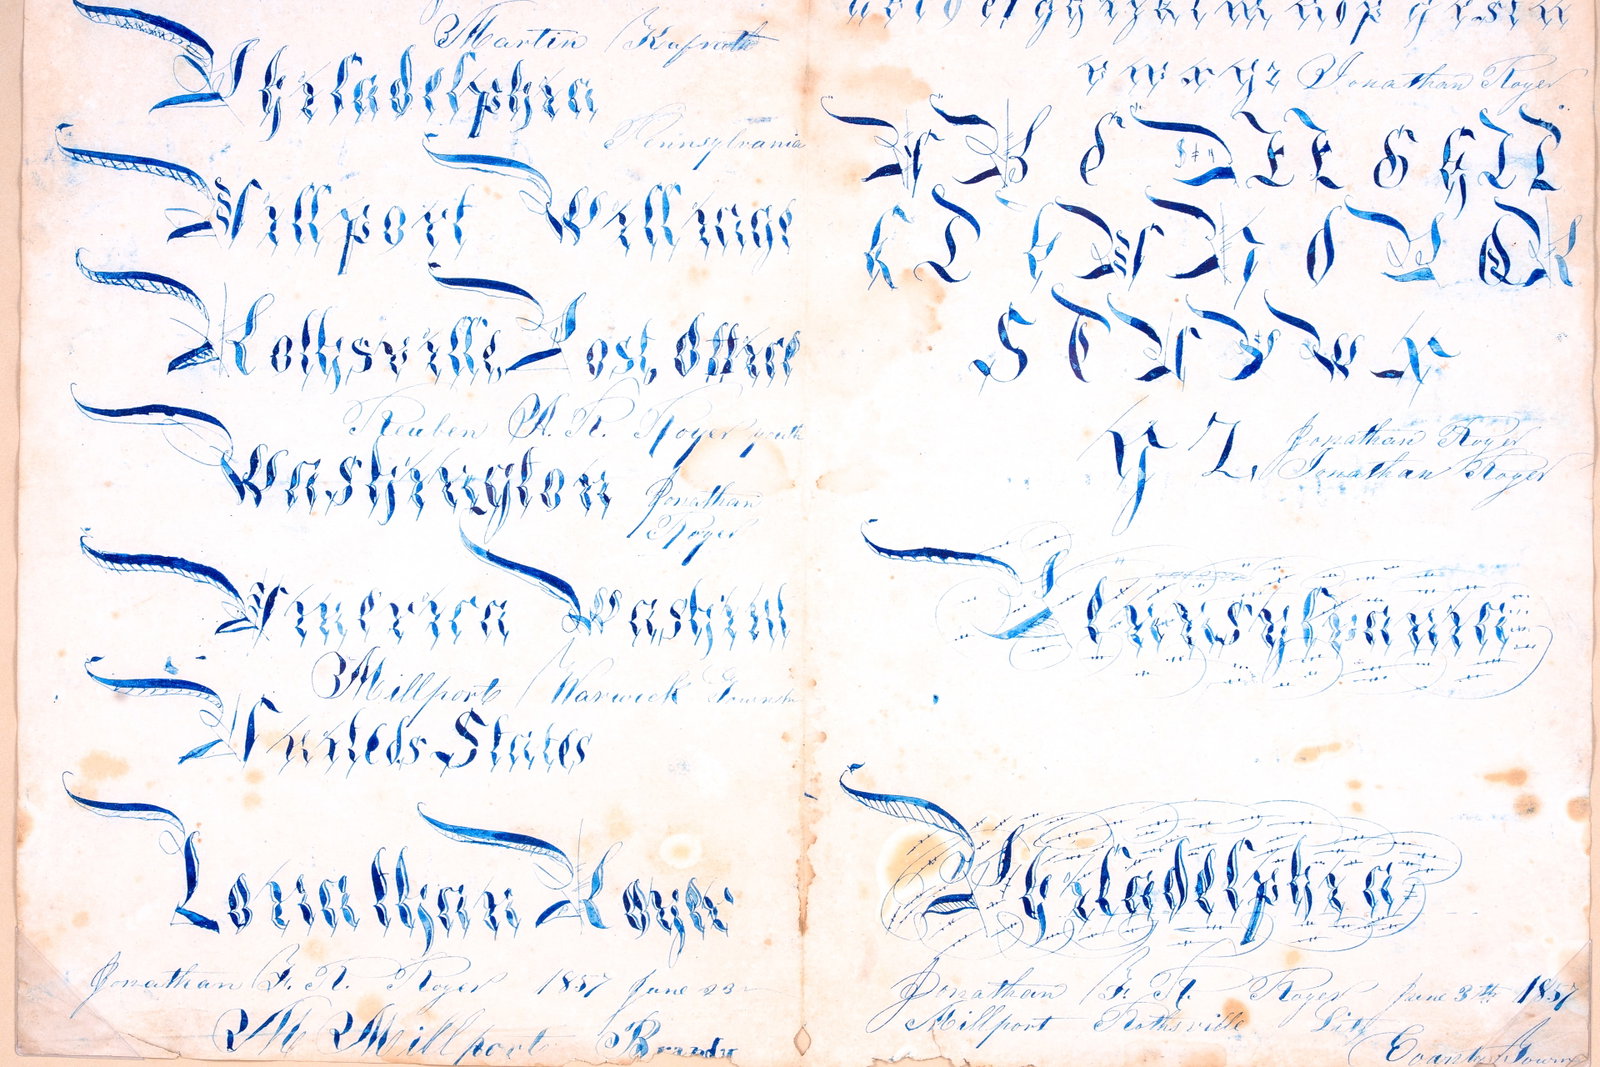 Martin
Philadelphia
Pennsylvania
Millport Village
Rothsville Post Office
Reuben A. R. Royer
Washington
Jonathan
Royer
America Washin
Millport Warwick
Uniteds States
Jonathan Royer
Jonathan R. Royer 1857 June 23
M Millport Brandy
v w x y z Jonathan Royer
A B C D E F G H I J
K L M N O P Q R
S T U V W X
Y Z Jonathan Royer
Jonathan Royer
Pennsylvania
Philadelphia
Jonathan R. Royer June 3th 1857
Millport Rothsville
County